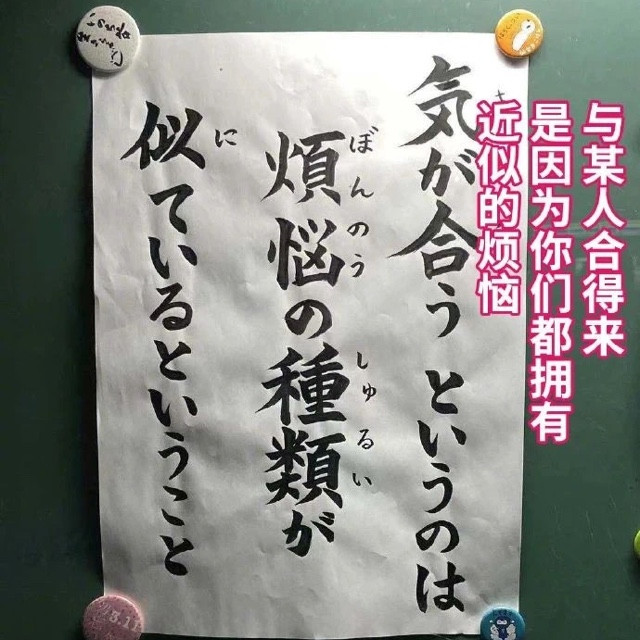 気が合うというのは
煩悩の種類が
似ているということ
き
ぼんのう
しゅるい
に
与某人合得来
是因为你们都拥有
近似的烦恼